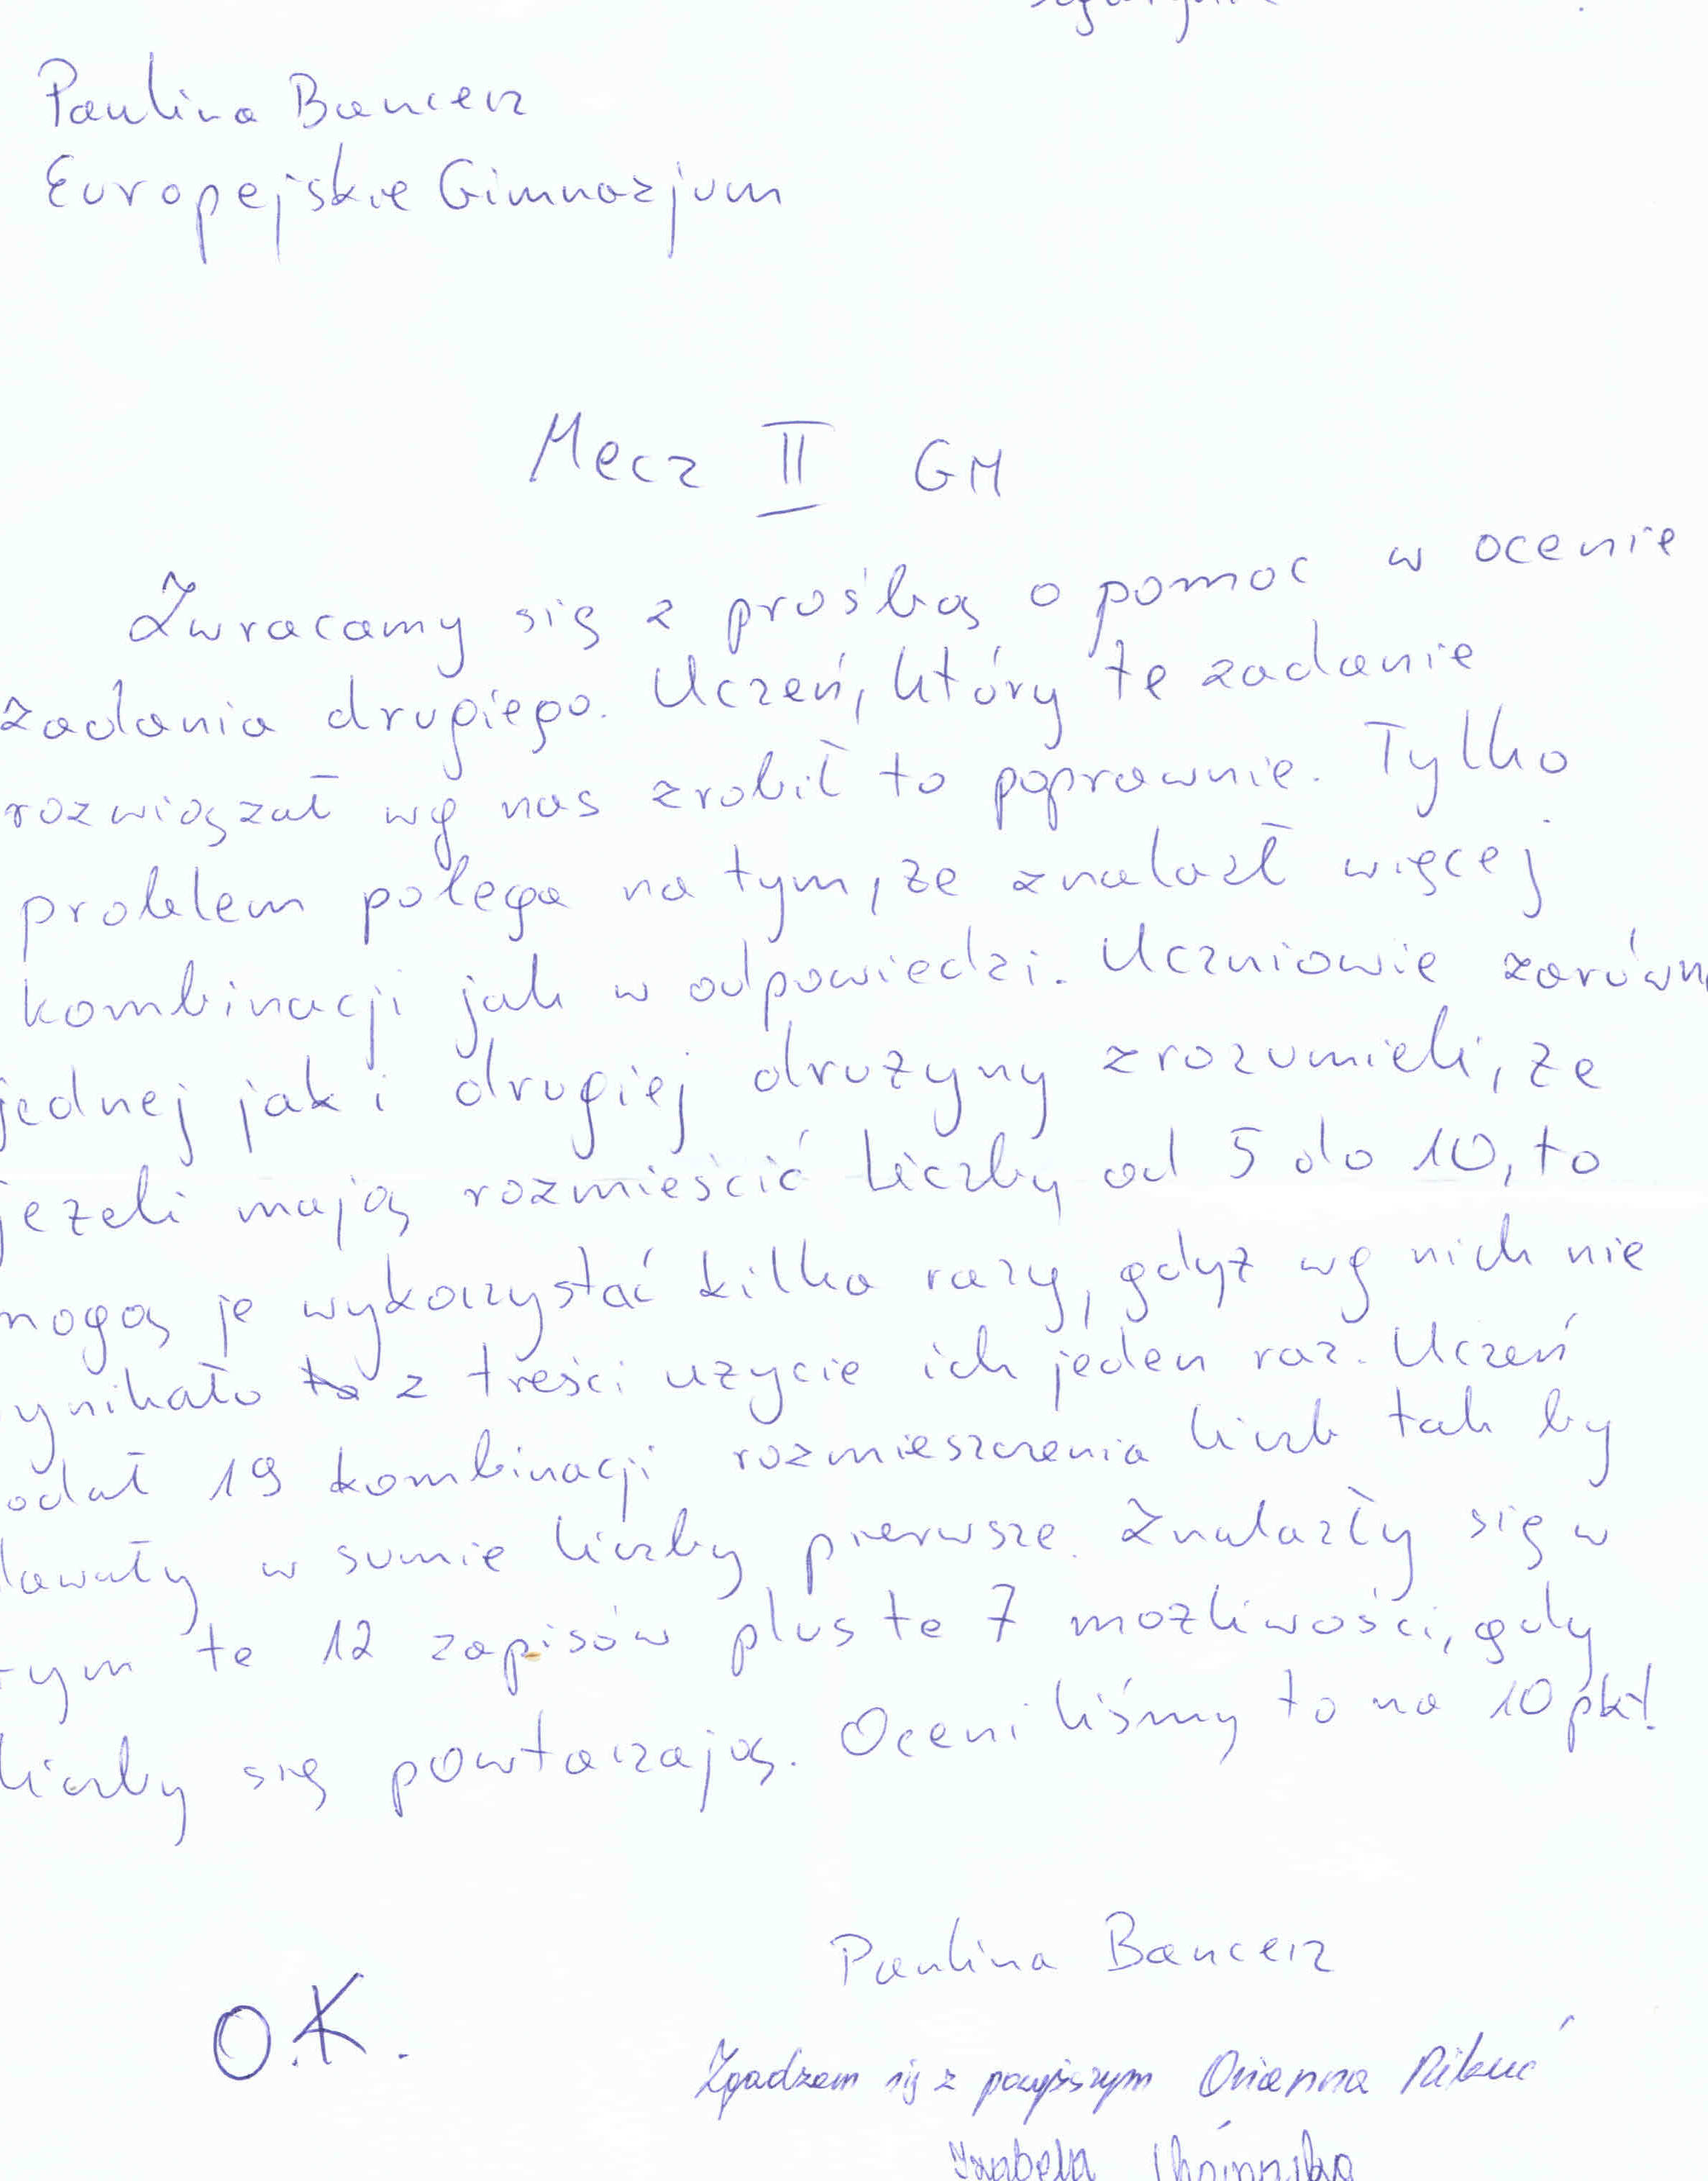 Paulina Bancerz
Europejskie Gimnazjum
Mecz II GM
Zwracamy się z prośbą o pomoc w ocenie
zadania drugiego. Uczeń, który te zadanie
rozwiązał wg nas zrobił to poprawnie. Tylko
problem polega na tym, że znalazł więcej
kombinacji jak w odpowiedzi. Uczniowie zarówn
jednej jak i drugiej drużyny zrozumieli, że
jeżeli mają rozmieścić liczby od 5 do 10, to
mogą je wykorzystać kilka razy, gdyż wg nich nie
ynikało z treści użycie ich jeden raz. Uczeń
odał 19 kombinacji rozmieszczenia liczb tak by
dawały w sumie liczby pierwsze. Znalazły się w
tym te 12 zapisów plus te 7 możliwości, gdy
liczby się powtarzają. Oceniliśmy to na 10 pkt.
Paulina Bancerz
O.K.
Zgadzam się z powyższym
Izabela